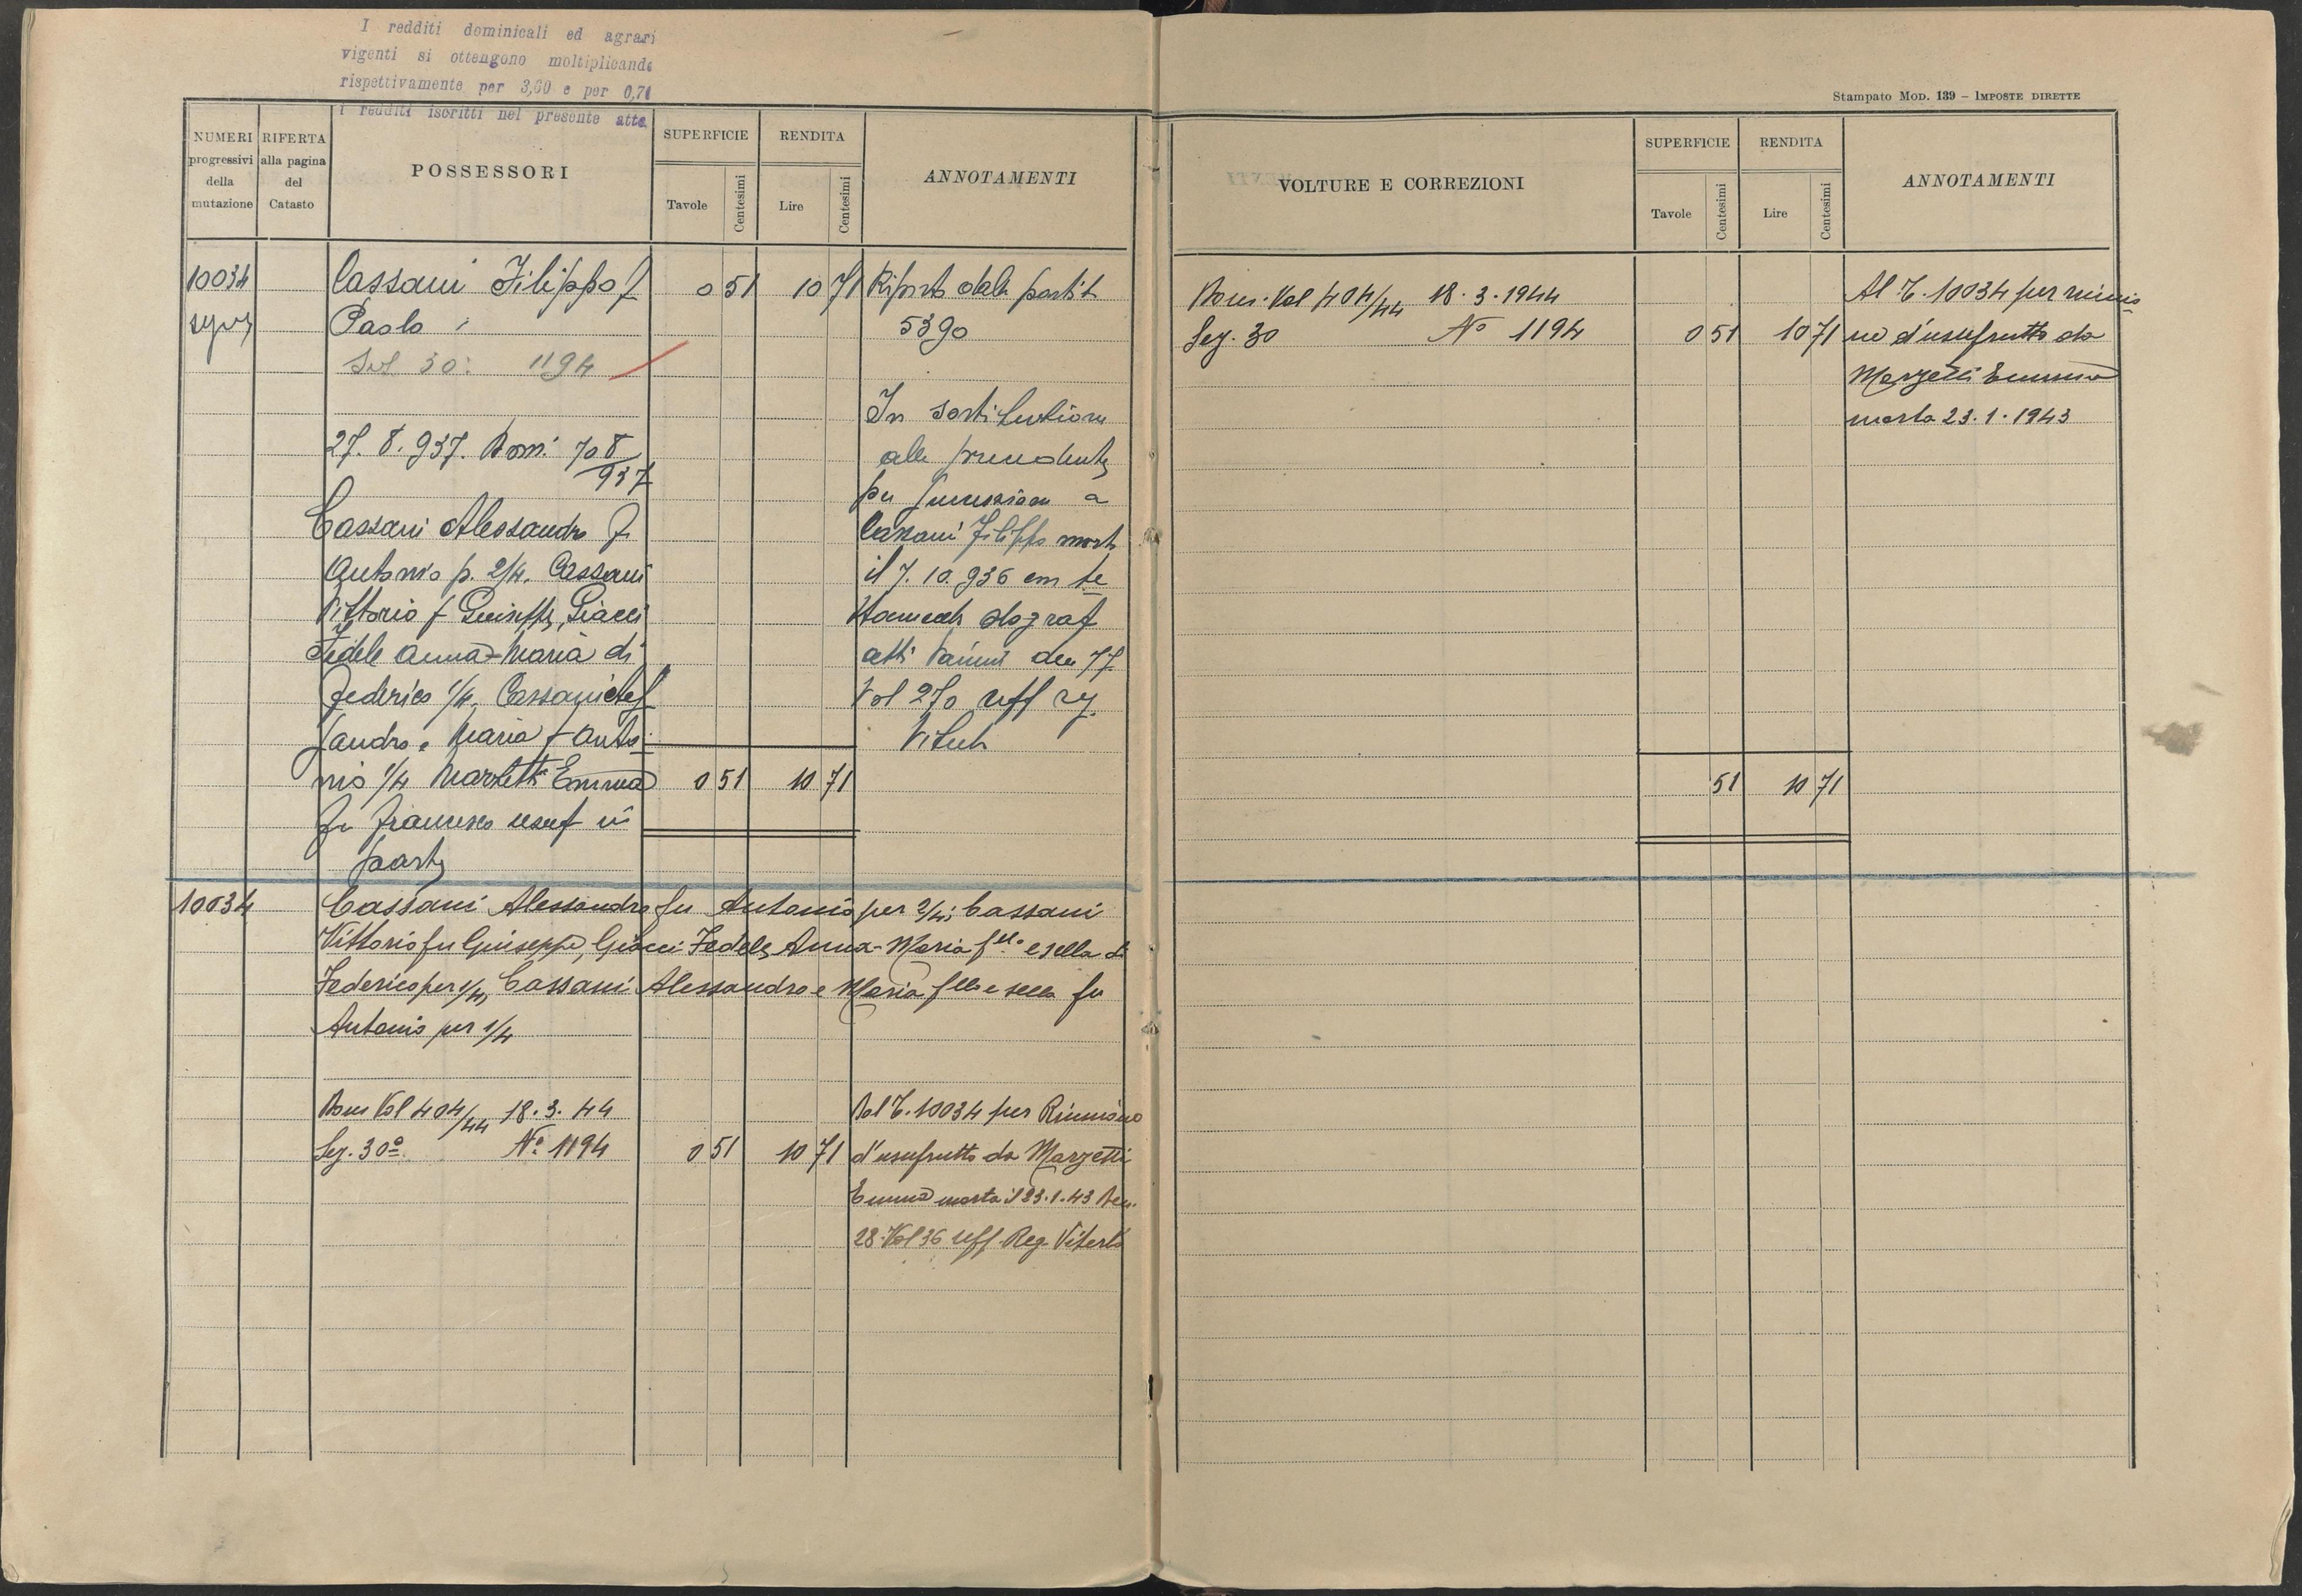 I redditi dominicali ed agrari
vigenti si ottengono moltiplicando
rispettivamente per 3,60 e per 0,70
i redditi iscritti nel presente atto.
Stampato Mod. 139 – Imposte dirette
NUMERI progressivi della mutazione
RIFERTA alla pagina del Catasto
POSSESSORI
SUPERFICIE
Tavole
Centesimi
RENDITA
Lire
Centesimi
ANNOTAMENTI
10034
Cassani Filippo f
0 51 10 71
Riporto dalla partita
Paolo
5390
Sez 30: 1194
In sostituzione
27. 8. 937. Dom. 708/937
alla precedente
per successione a
Cassani Alessandro fu
Cassani Filippo morto
Antonio p. 2/4, Cassani
il 7. 10. 936 con te
Vittorio f Giuseppe, Giacci
stamento olograf
Fedele Anna-Maria di
atti Vanni den 77
Federico 1/4, Cassani Ales
Vol 270 uff reg
sandro e Maria f Anto
Viterb
nio 1/4 Marzetti Emma
0 51 10 71
fu Francesco usuf in
parte
10034
Cassani Alessandro fu Antonio per 2/4; Cassani
Vittorio fu Giuseppe, Giacci Fedele, Anna-Maria flli e sella di
Federico per 1/4, Cassani Alessandro e Maria flli e sella fu
Antonio per 1/4
Dom Vol 404/44 18. 3. 44
Dal T. 10034 per Riunione
Sez. 30ª No. 1194
0 51 10 71
d'usufrutto da Marzetti
Emma morta il 23.1.43 Den.
28 Vol 36 Uff. Reg. Viterbo
VOLTURE E CORREZIONI
SUPERFICIE
Tavole
Centesimi
RENDITA
Lire
Centesimi
ANNOTAMENTI
Dom. Vol 404/44 18. 3. 1944
Al T. 10034 per riunio
Sez. 30 No 1194
0 51 10 71
ne d'usufrutto da
Marzetti Emma
morta 23. 1. 1943
51 10 71